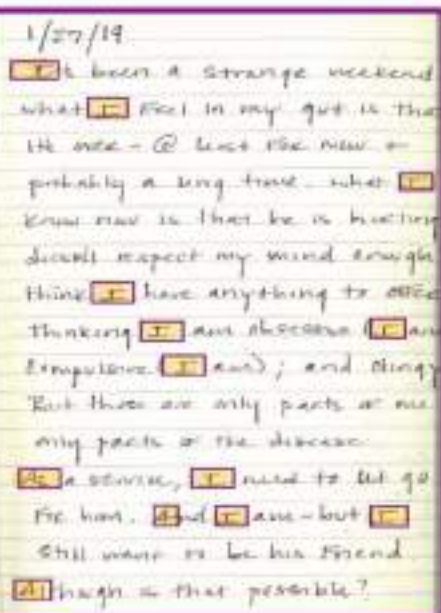 1/27/19
It's been a strange weekend
what I feel in my gut is that
its over - @ least for now +
probably a long time. what I
know now is that he is
respect my mind enough
think I have anything to offer
thinking I am obsessive (I am
compulsive (I am); and clingy
But those are only parts of me
only parts of the disease
As a service, I need to let go
for him. And I am - but I
still want to be his friend
Although is that possible?